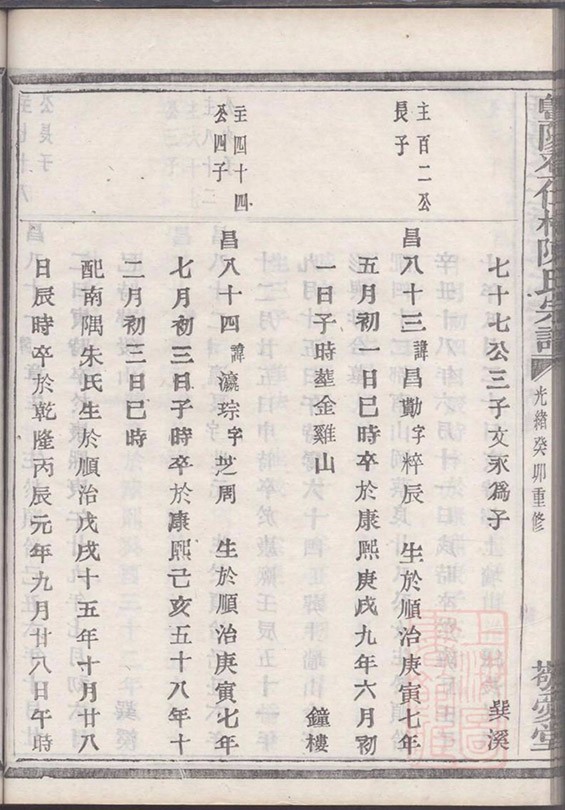 陳氏宗譜
光緒癸卯重修
敬愛堂
七十七公三子文永爲子
龔溪
主百二公
長子
昌八十三諱昌勳字粹辰 生於順治庚寅七年
五月初一日巳時卒於康熙庚戌九年六月初
一日子時塟金雞山 鐘樓
主四十四
公四子
昌八十四諱瀛琮字芝周 生於順治庚寅七年
七月初三日子時卒於康熙己亥五十八年十
二月初三日巳時
配南隅朱氏生於順治戊戌十五年十月廿八
日辰時卒於乾隆丙辰元年九月廿八日午時